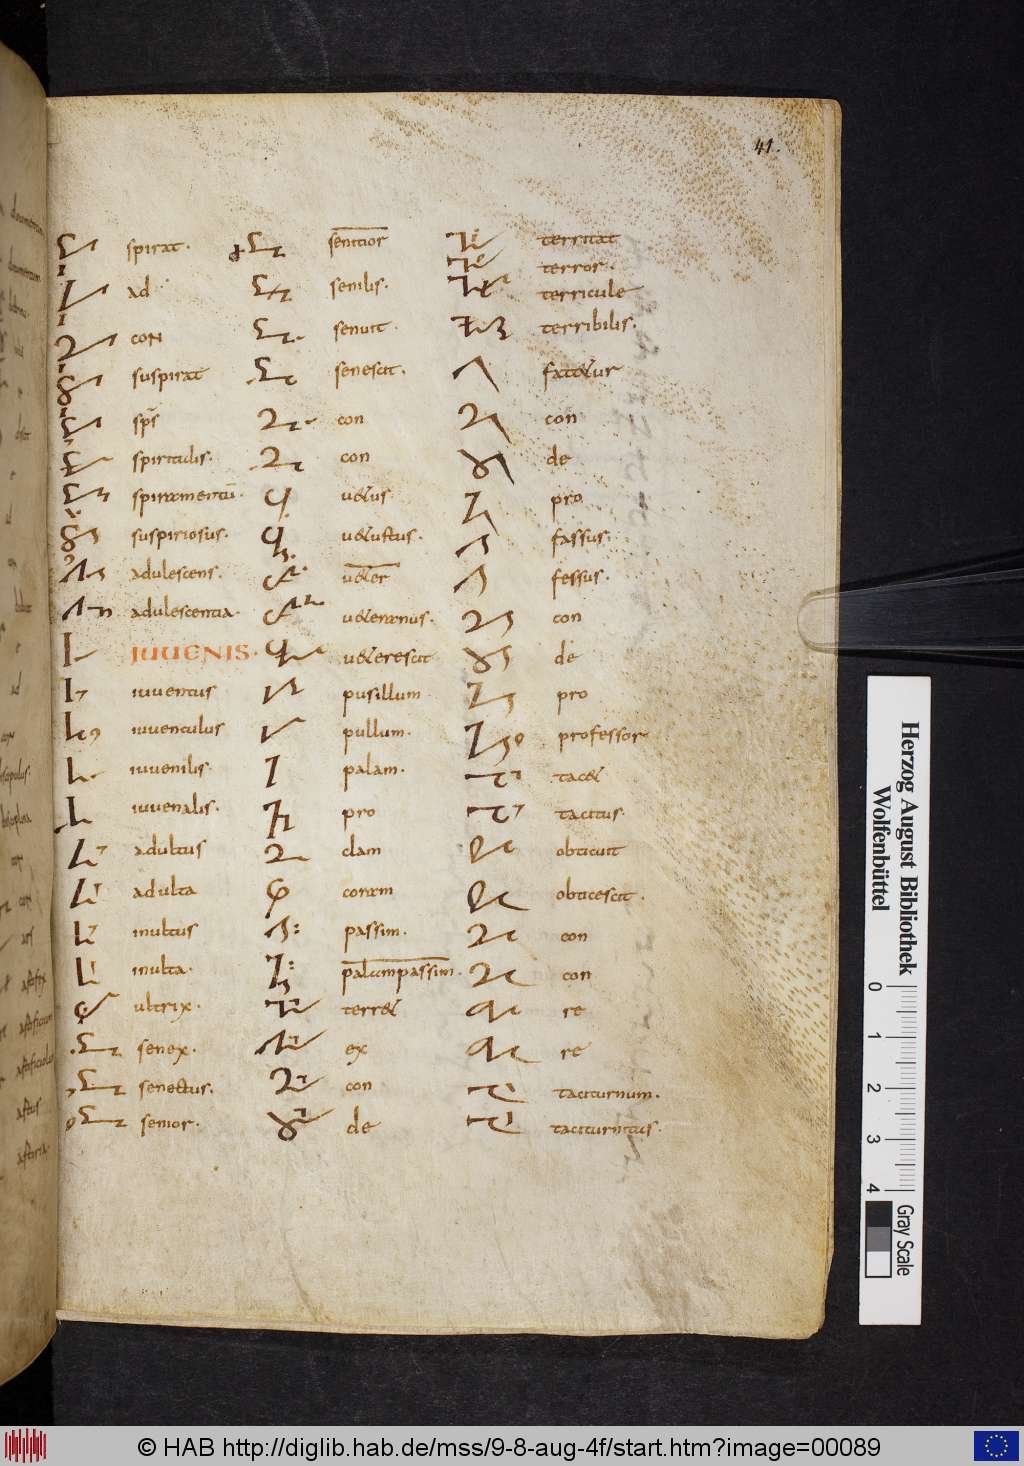 41.
spirat.
ad
con
suspirat
sp̅s
spiritalis.
spiramentu̅.
suspiriosus.
adulescens.
adulescentia.
IUUENIS.
iuuentus
iuuenculus
iuuenilis.
iuuenalis.
adultus
adulta
inultus
inulta.
ultrix.
senex.
senectus.
senior.
senilis.
senuit.
senescit.
con
con
uetus.
uetustus.
ueteranus.
ueterescit
pusillum
pullum.
palam.
pro
clam
coram
passim.
palampassim.
terret
ex
con
de
territat
terror.
terricule
terribilis.
fatetur
con
de
pro
fassus.
fessus.
con
de
pro
professor
tacet
tacitus.
obticuit
obticescit.
con
con
re
re
taciturnum.
taciturnitus.
Herzog August Bibliothek
Wolfenbüttel
0 1 2 3 4
Gray Scale
© HAB http://diglib.hab.de/mss/9-8-aug-4f/start.htm?image=00089